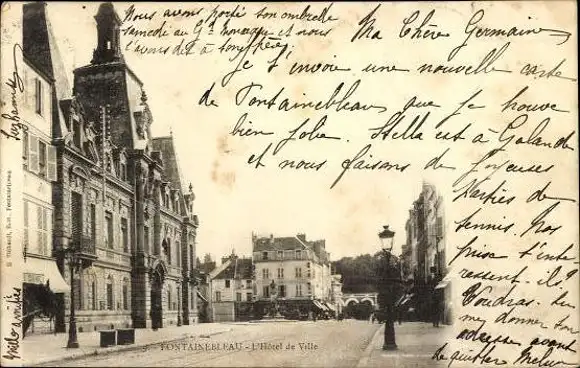 Nous avons porté ton ombrelle
samedi au Gd. et nous
l'avons dit à ton frère
Ma Chère Germaine
Je t'envoie une nouvelle carte
de Fontainebleau que je trouve
bien jolie. Stella est à Galande
et nous faisons de joyeuses
parties de
tennis. Nos
t'inté-
ressent-ils?
Voudras-tu
me donner ton
adresse avant
de quitter Melun
amitiés
FONTAINEBLEAU - L'Hôtel de Ville
Thibault, Edit. Fontainebleau